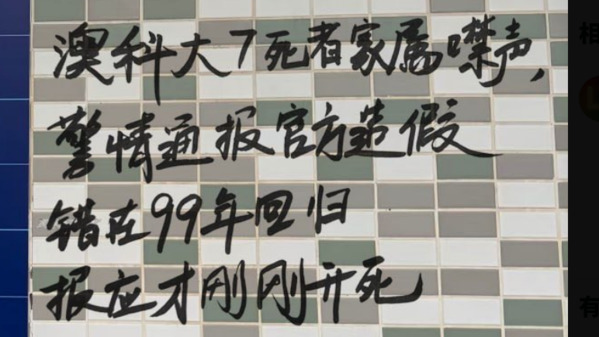 澳科大7死者家属噤声,
警情通报官方造假
错在99年回归
报应才刚刚开死